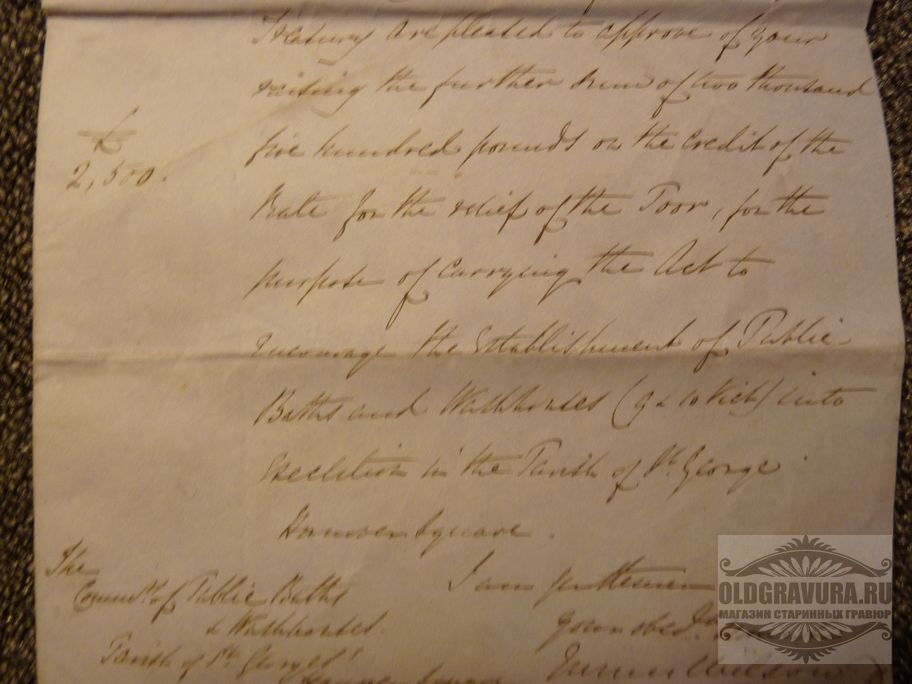 Treasury are pleased to approve of your
raising the further sum of two thousand
£
2,500.
five hundred pounds on the credit of the
Rate for the relief of the Poor, for the
purpose of carrying the Act to
encourage the Establishment of Public
Baths and Washhouses (9 & 10 Vict) into
Execution in the Parish of St. George
Hanover Square.
I am Gentlemen
The
Commrs. of Public Baths
& Washhouses.
your obedt.
Parish of St. George's
Hanover Square
Wilson
OLDGRAVURA.RU
МАГАЗИН СТАРИННЫХ ГРАВЮР